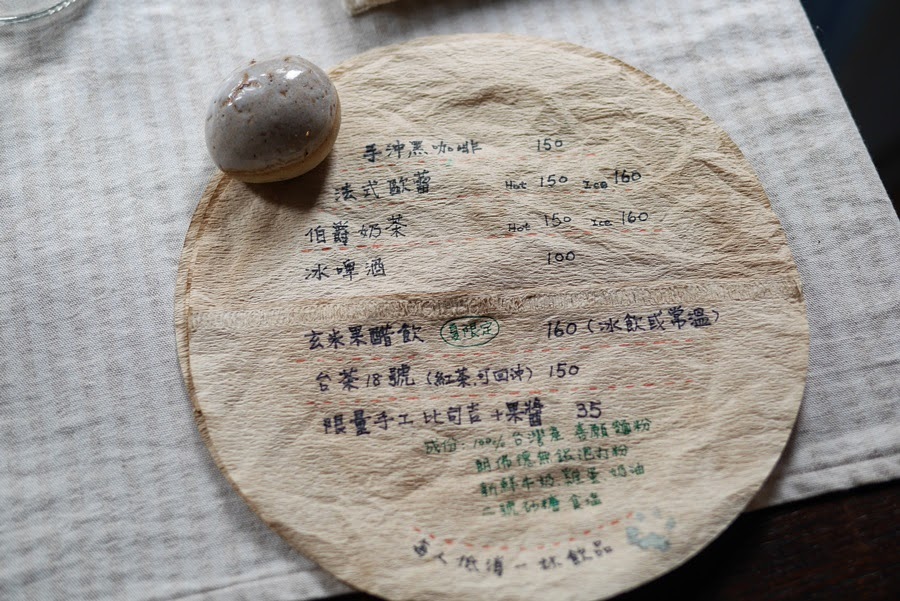 手沖黑咖啡 150
法式歐蕾 Hot 150 Ice 160
伯爵奶茶 Hot 150 Ice 160
冰啤酒 100
玄米果醋飲 夏限定 160 (冰飲或常溫)
台茶18號 (紅茶.可回沖) 150
限量手工比司吉+果醬 35
成份: 100% 台灣產 喜願麵粉
無鋁泡打粉
新鮮牛奶 雞蛋 奶油
二號砂糖 食塩
每人低消一杯飲品